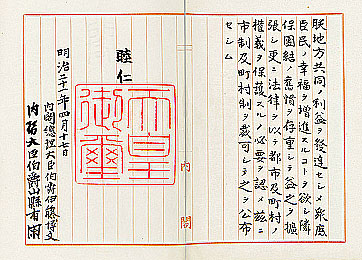 朕地方共同ノ利益ヲ發達セシメ衆庶
臣民ノ幸福ヲ增進スルコトヲ欲シ隣
保團結ノ舊慣ヲ存重シテ益之ヲ擴
張シ更ニ法律ヲ以テ都市及町村ノ
權義ヲ保護スルノ必要ヲ認メ茲ニ
市制及町村制ヲ裁可シテ之ヲ公布
セシム
睦仁
天皇
御璽
明治二十一年四月十七日
內閣總理大臣伯爵伊藤博文
內務大臣伯爵山縣有朋
內閣